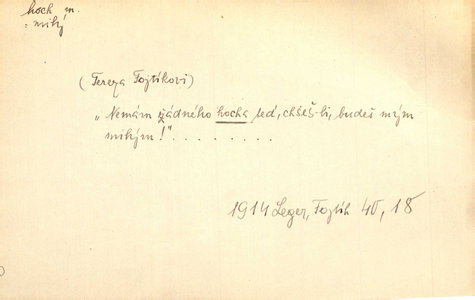 hoch m.
: milý
( Tereza Fojtíkovi )
„Nemám žádného hocha teď, chceš-li, budeš mým
milým!". . . . . . . .
1914 Leger, Fojtík 40, 18